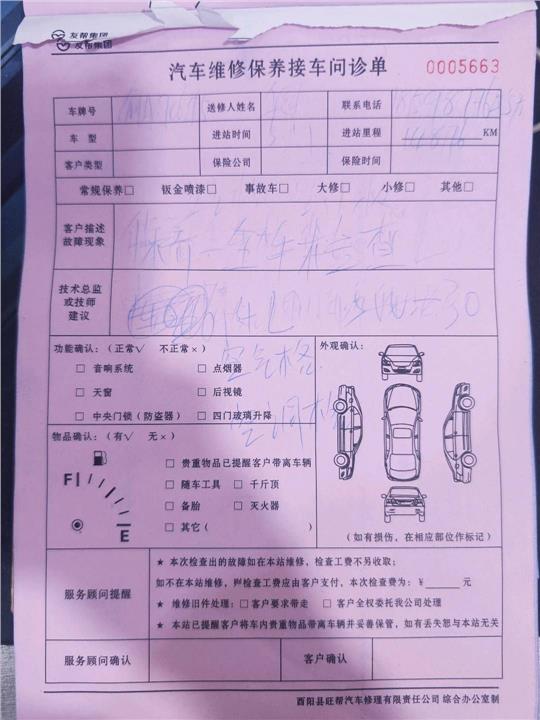 友帮集团
友帮集团
汽车维修保养接车问诊单 0005663
车牌号 送修人姓名 联系电话
车 型 进站时间 进站里程 KM
客户类型 保险公司 保险时间
常规保养□ 钣金喷漆□ 事故车□ 大修□ 小修□ 其他□
客户描述
故障现象
保养 全车检查
技术总监
或技师
建议
功能确认：（正常√ 不正常×） 外观确认：
空气格
□ 音响系统 □ 点烟器
□ 天窗 □ 后视镜
□ 中央门锁（防盗器） □ 四门玻璃升降
空调格
物品确认：（有√ 无×）
□ 贵重物品已提醒客户带离车辆
F □ 随车工具 □ 千斤顶
□ 备胎 □ 灭火器
E □ 其它（ ）
（如有损伤，在相应部位作标记）
服务顾问提醒
★ 本次检查出的故障如在本站维修，检查工费不另收取；
如不在本站维修，则检查工费应由客户支付，本次检查费为：￥ 元
★ 维修旧件处理：□ 客户要求带走 □ 客户全权委托我公司处理
★ 本站已提醒客户将车内贵重物品带离车辆并妥善保管，如有丢失恕与本站无关
服务顾问确认 客户确认
酉阳县旺帮汽车修理有限责任公司 综合办公室制